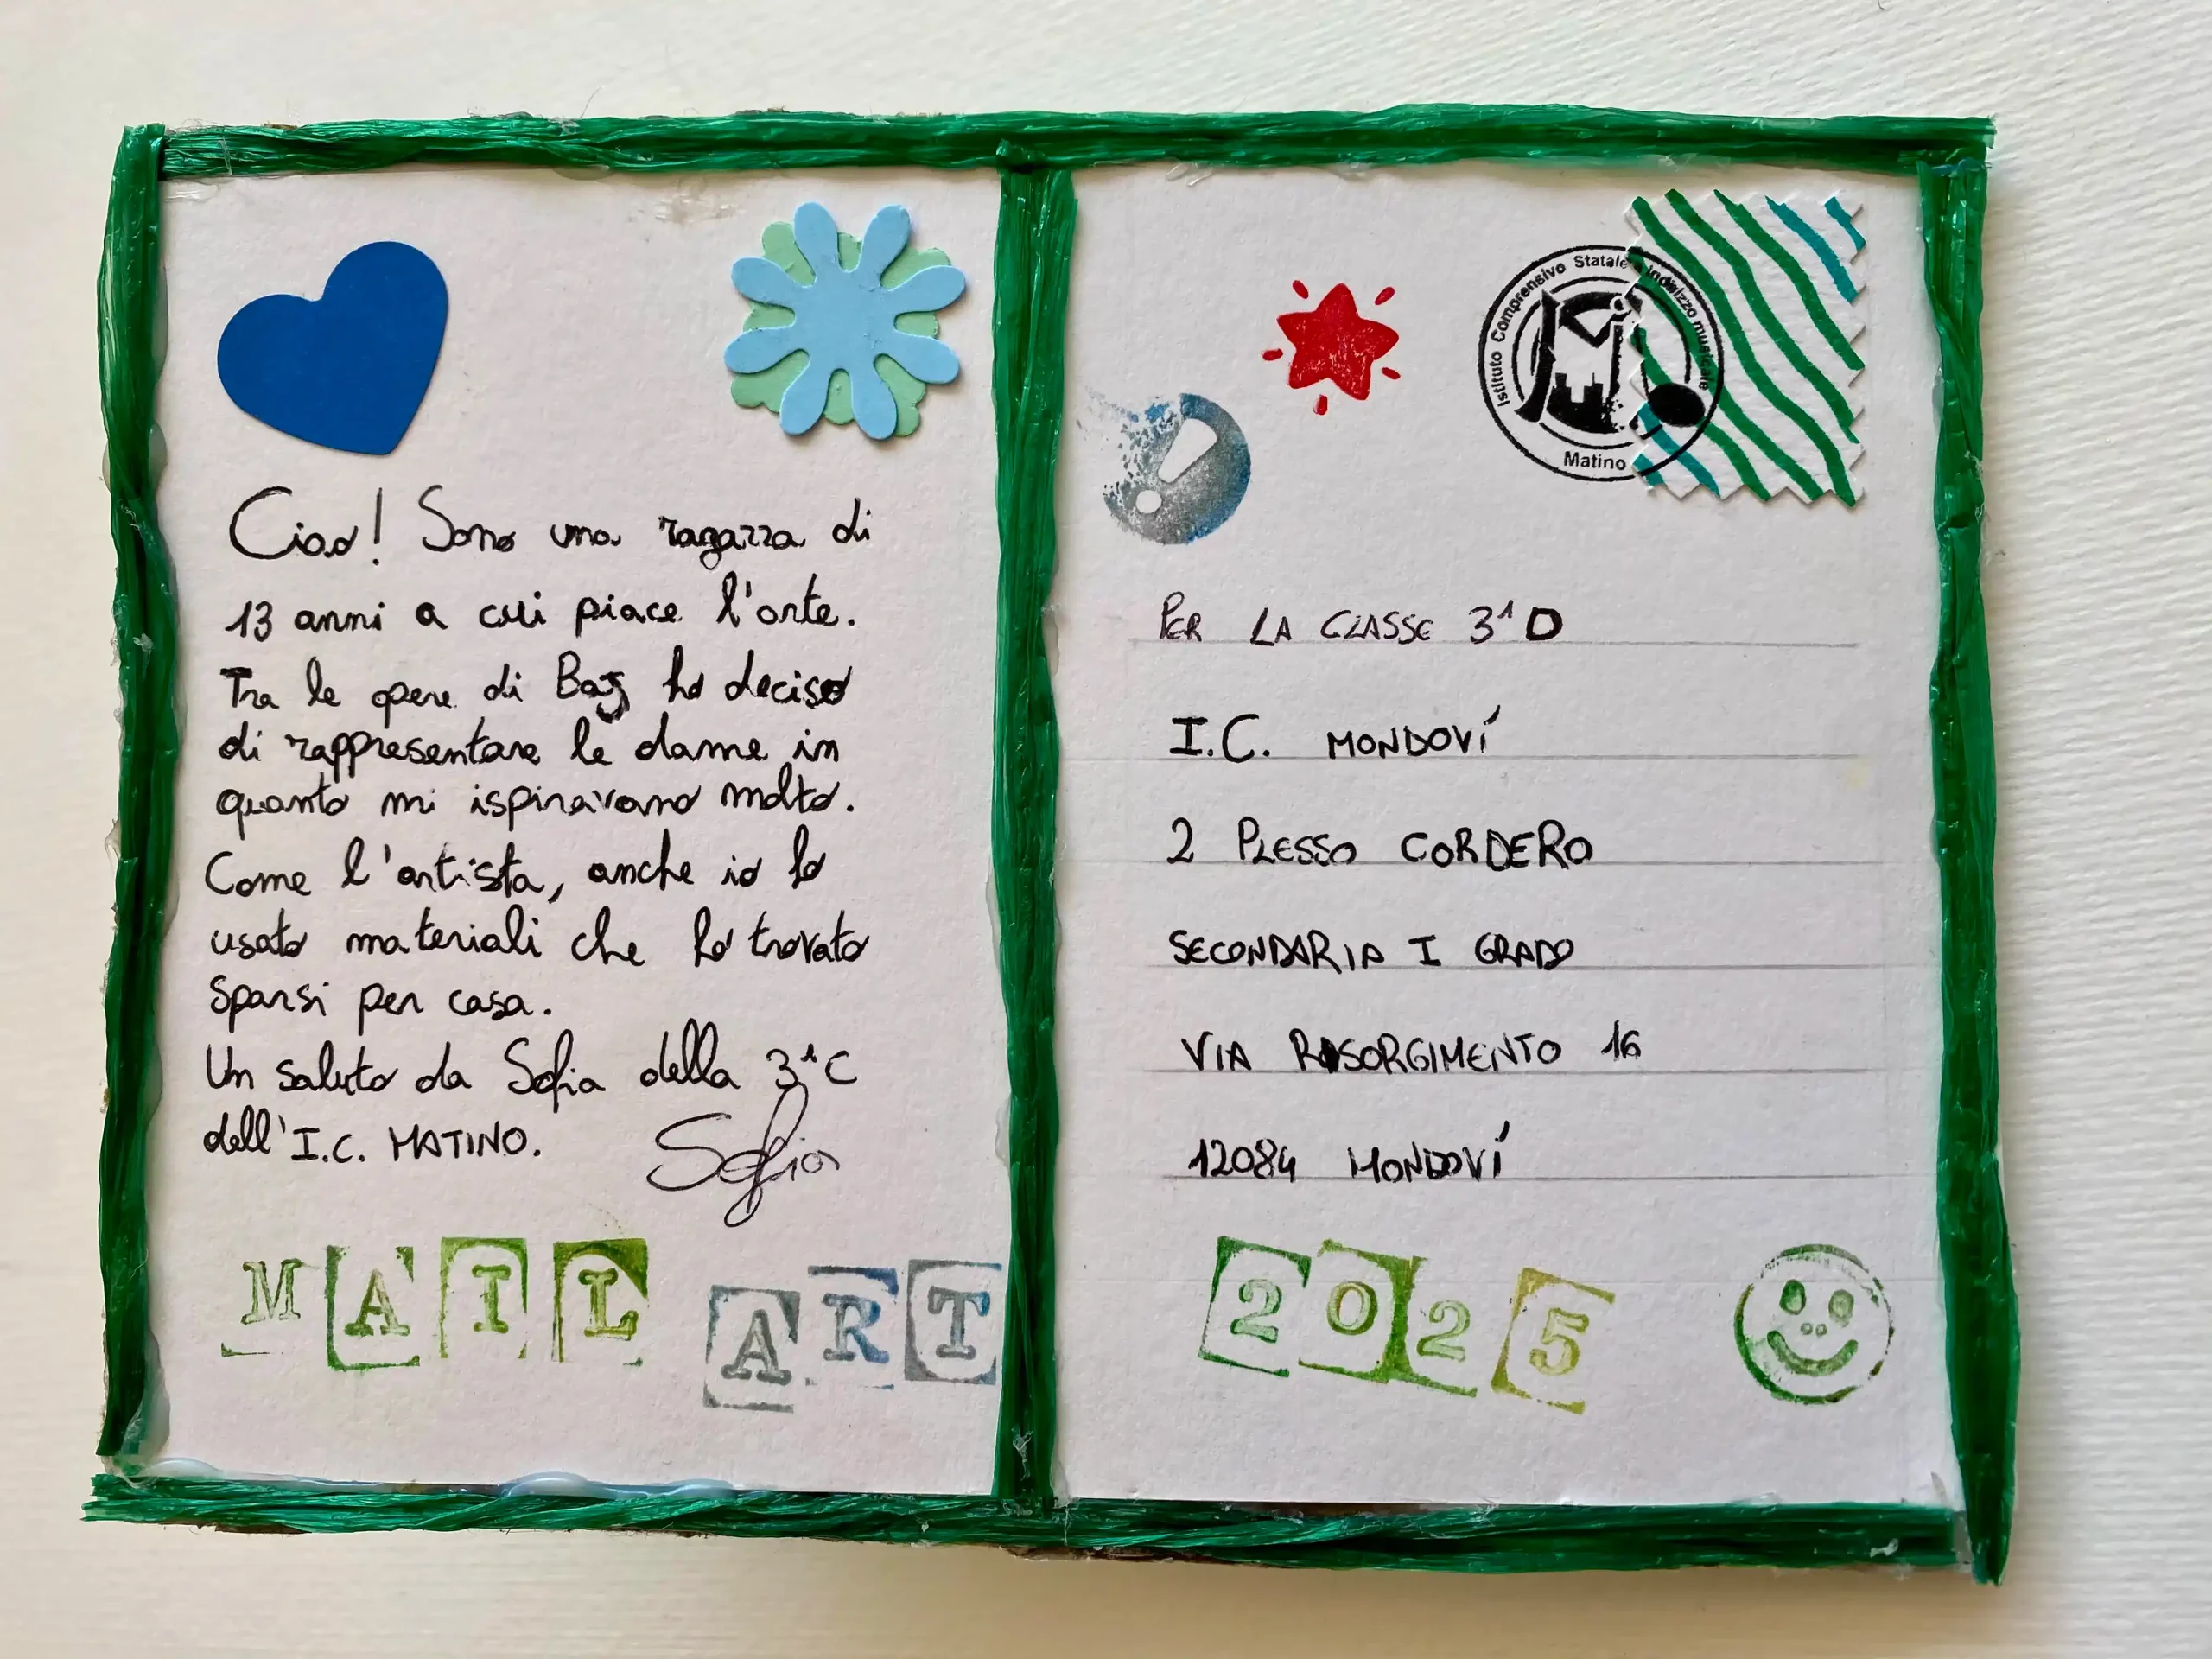 Ciao! Sono una ragazza di
13 anni a cui piace l'arte.
Tra le opere di Baj ho deciso
di rappresentare le dame in
quanto mi ispiravano molto.
Come l'artista, anche io ho
usato materiali che ho trovato
sparsi per casa.
Un saluto da Sofia della 3^C
dell'I.C. MATINO.
Sofia
MAIL ART
Istituto Comprensivo Statale a Indirizzo musicale
Matino
PER LA CLASSE 3^D
I.C. MONDOVÍ
2 PLESSO CORDERO
SECONDARIA I GRADO
VIA RISORGIMENTO 16
12084 MONDOVÍ
2025